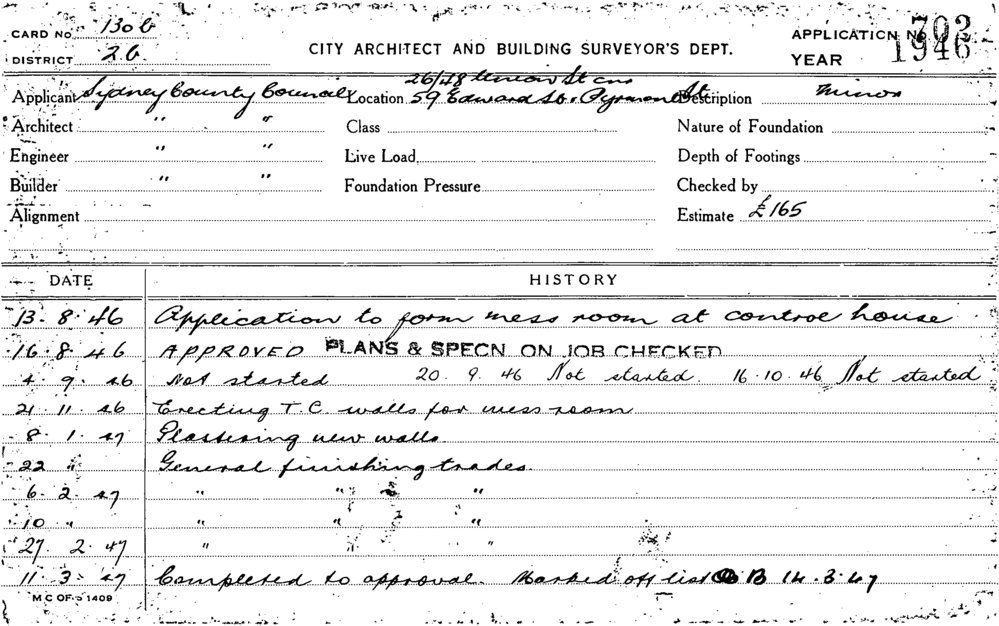 CARD No 130b
DISTRICT 2b.
CITY ARCHITECT AND BUILDING SURVEYOR'S DEPT.
APPLICATION No 703
YEAR 1946
26/28 Union St cnr
Applicant Sydney County Council Location 59 Edward St. Pyrmont St. Description Minor
Architect " " Class Nature of Foundation
Engineer " " Live Load Depth of Footings
Builder " " Foundation Pressure Checked by
Alignment Estimate £165
DATE HISTORY
13. 8. 46 Application to form mess room at control house
16. 8. 46 APPROVED PLANS & SPECN ON JOB CHECKED
4. 9. 46 Not started 20. 9. 46 Not started. 16.10.46 Not started
21. 11. 46 Erecting T.C. walls for mess room
8. 1. 47 Plastering new walls
22 " General finishing trades.
6. 2. 47 " " "
10 " " " "
27. 2. 47 " " "
11. 3. 47 Completed to approval. Marked off list B 14.3.47
M C OF S 1409